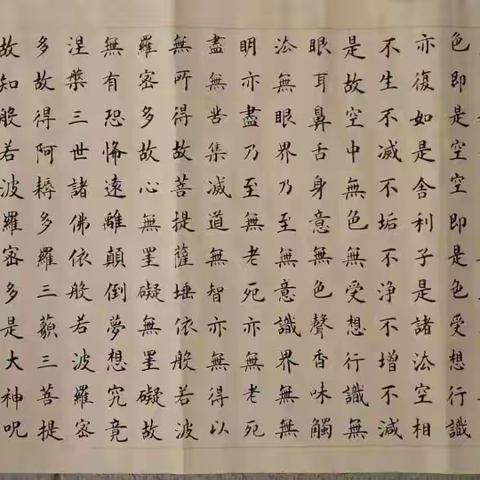 色即是空空即是色受想行識
亦復如是舍利子是諸法空相
不生不滅不垢不淨不增不減
是故空中無色無受想行識無
眼耳鼻舌身意無色聲香味觸
法無眼界乃至無意識界無無
明亦盡乃至無老死亦無老死
盡無苦集滅道無智亦無得以
無所得故菩提薩埵依般若波
羅密多故心無罣礙無罣礙故
無有恐怖遠離顛倒夢想究竟
涅槃三世諸佛依般若波羅密
多故得阿耨多羅三藐三菩提
故知般若波羅密多是大神呪